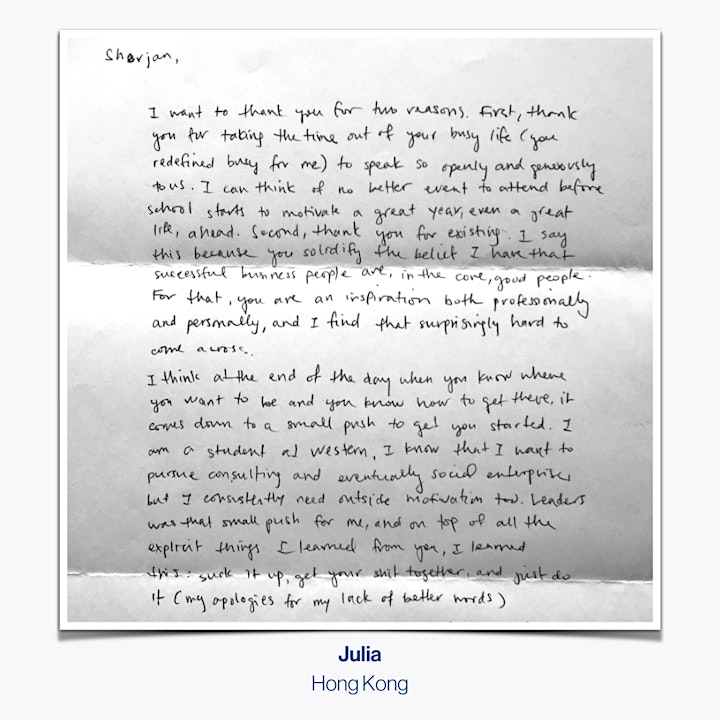 Sherjan,
I want to thank you for two reasons. First, thank
you for taking the time out of your busy life (you
redefined busy for me) to speak so openly and generously
to us. I can think of no better event to attend before
school starts to motivate a great year, even a great
life, ahead. Second, thank you for existing. I say
this because you solidify the belief I have that
successful business people are, in the core, good people.
For that, you are an inspiration both professionally
and personally, and I find that surprisingly hard to
come across.
I think at the end of the day when you know where
you want to be and you know how to get there, it
comes down to a small push to get you started. I
am a student at Western, I know that I want to
pursue consulting and eventually social enterprise,
but I consistently need outside motivation too. Leaders
was that small push for me, and on top of all the
explicit things I learned from you, I learned
this: suck it up, get your shit together, and just do
it (my apologies for my lack of better words)
Julia
Hong Kong